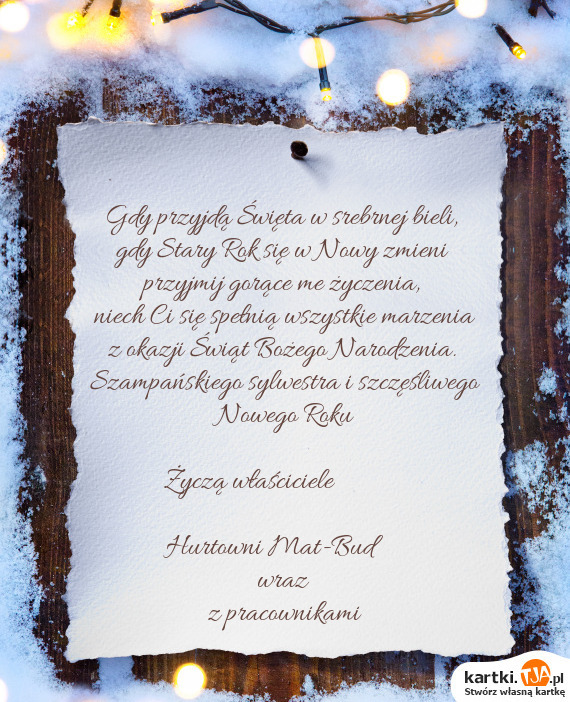 Gdy przyjdą Święta w srebrnej bieli,
gdy Stary Rok się w Nowy zmieni
przyjmij gorące me życzenia,
niech Ci się spełnią wszystkie marzenia
z okazji Świąt Bożego Narodzenia.
Szampańskiego sylwestra i szczęśliwego
Nowego Roku
Życzą właściciele
Hurtowni Mat-Bud
wraz
z pracownikami
kartki.TJA.pl
Stwórz własną kartkę